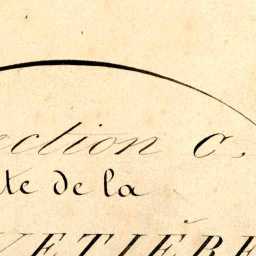 ection C.
te de la
VETIÈRE